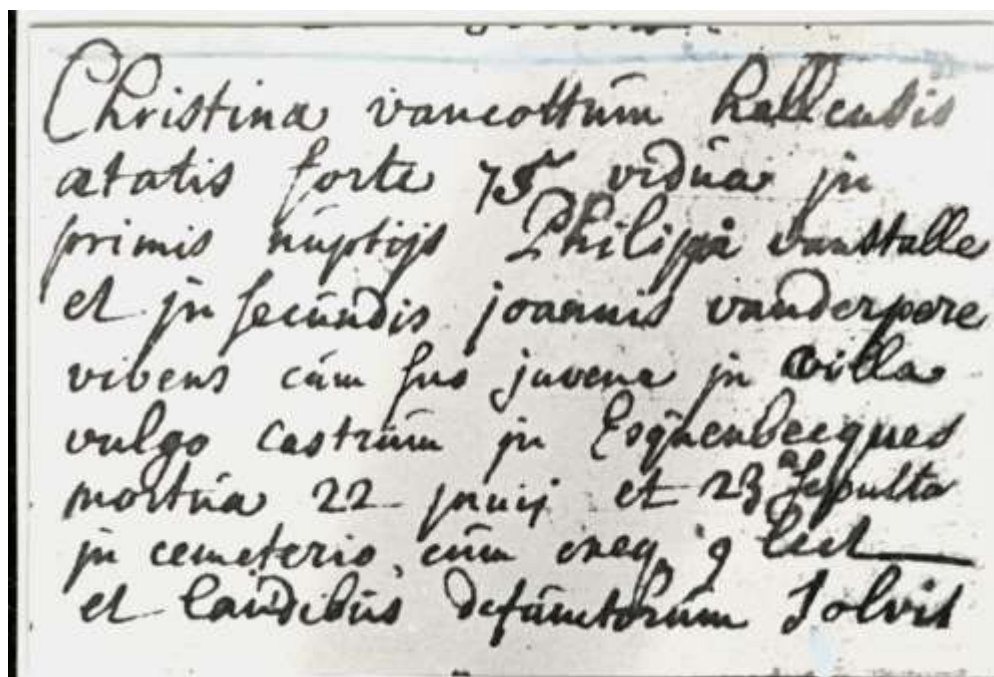 Christina vancottum hallensis
ætatis forte 75 vidua jn
primis nuptijs Philippi vanstalle
et jn secundis joannis vanderpere
vivens cum suo juvene jn villa
vulgo castrum jn Esquenbecques
mortua 22 junij et 23ª sepulta
jn cemeterio cum exeq. 9 lect
et laudibus defunctorum solvit